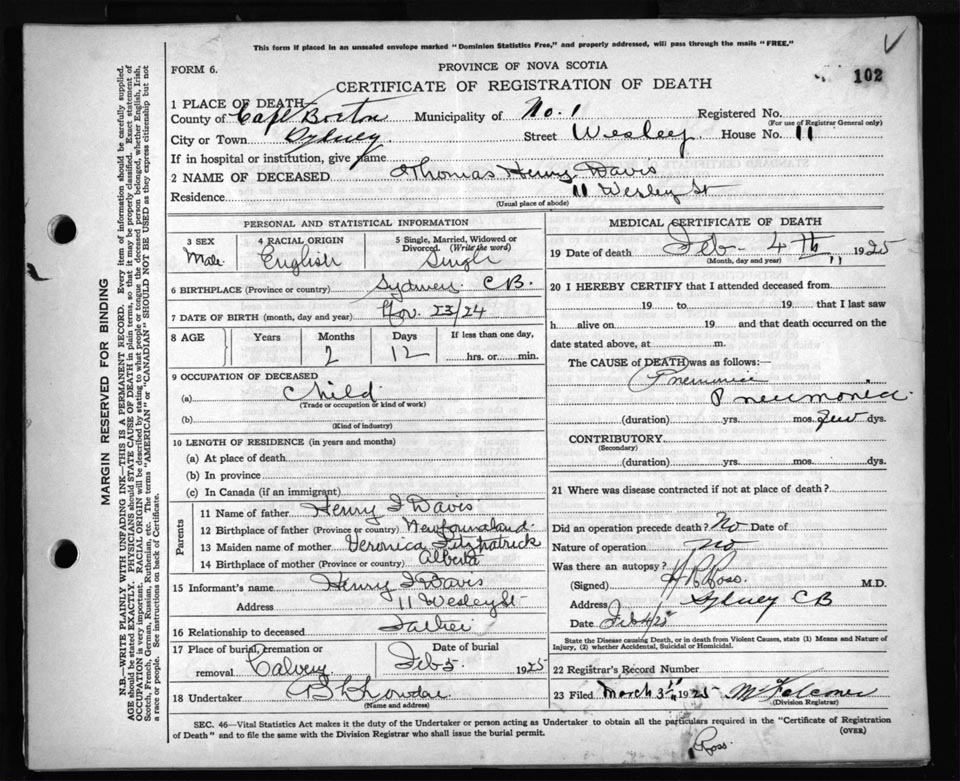 This form if placed in an unsealed envelope marked "Dominion Statistics Free," and properly addressed, will pass through the mails "FREE."
FORM 6.
PROVINCE OF NOVA SCOTIA
102
CERTIFICATE OF REGISTRATION OF DEATH
1 PLACE OF DEATH
County of Cape Breton Municipality of No. 1 Registered No.
(For use of Registrar General only)
City or Town Sydney Street Wesley House No. 11
If in hospital or institution, give name
2 NAME OF DECEASED Thomas Henry Davis
Residence 11 Wesley St
(Usual place of abode)
PERSONAL AND STATISTICAL INFORMATION
3 SEX
Male
4 RACIAL ORIGIN
English
5 Single, Married, Widowed or Divorced. (Write the word)
Single
6 BIRTHPLACE (Province or country) Sydney C.B.
7 DATE OF BIRTH (month, day and year) Nov. 23/24
8 AGE Years Months Days If less than one day,
2 12 hrs. or min.
9 OCCUPATION OF DECEASED
(a) Child
(Trade or occupation or kind of work)
(b)
(Kind of industry)
10 LENGTH OF RESIDENCE (in years and months)
(a) At place of death
(b) In province
(c) In Canada (if an immigrant)
Parents
11 Name of father Henry J Davis
12 Birthplace of father (Province or country) Newfoundland
13 Maiden name of mother Veronica Fitzpatrick
14 Birthplace of mother (Province or country) Alberta
15 Informant's name Henry J Davis
Address 11 Wesley St
16 Relationship to deceased Father
17 Place of burial, cremation or removal Calvery
Date of burial
Feb 5 1925
18 Undertaker
(Name and address)
MEDICAL CERTIFICATE OF DEATH
19 Date of death Feb - 4th 1925
(Month, day and year)
20 I HEREBY CERTIFY that I attended deceased from
19 to 19 that I last saw
h alive on 19 and that death occurred on the
date stated above, at m.
The CAUSE of DEATH was as follows:—
Pneumonia.
(duration) yrs. mos. few dys.
CONTRIBUTORY
(Secondary)
(duration) yrs. mos. dys.
21 Where was disease contracted if not at place of death?
Did an operation precede death? No Date of
Nature of operation no
Was there an autopsy?
(Signed) Ross. M.D.
Address Sydney CB
Date Feb 4/25
State the Disease causing Death, or in death from Violent Causes, state (1) Means and Nature of Injury, (2) whether Accidental, Suicidal or Homicidal.
22 Registrar's Record Number
23 Filed March 3rd 1925 M Falconer
(Division Registrar)
SEC. 46—Vital Statistics Act makes it the duty of the Undertaker or person acting as Undertaker to obtain all the particulars required in the "Certificate of Registration
of Death" and to file the same with the Division Registrar who shall issue the burial permit. (OVER)
Ross.
MARGIN RESERVED FOR BINDING
N.B.—WRITE PLAINLY WITH UNFADING INK—THIS IS A PERMANENT RECORD. Every item of information should be carefully supplied.
AGE should be stated EXACTLY. PHYSICIANS should STATE CAUSE OF DEATH in plain terms, so that it may be properly classified. Exact statement of
OCCUPATION is very important. RACIAL ORIGIN will be described by stating to what people or tongue the deceased person belonged, whether English, Irish,
Scotch, French, German, Russian, Ruthenian, etc. The terms "AMERICAN" or "CANADIAN" SHOULD NOT BE USED as they express citizenship but not
a race or people. See instructions on back of Certificate.